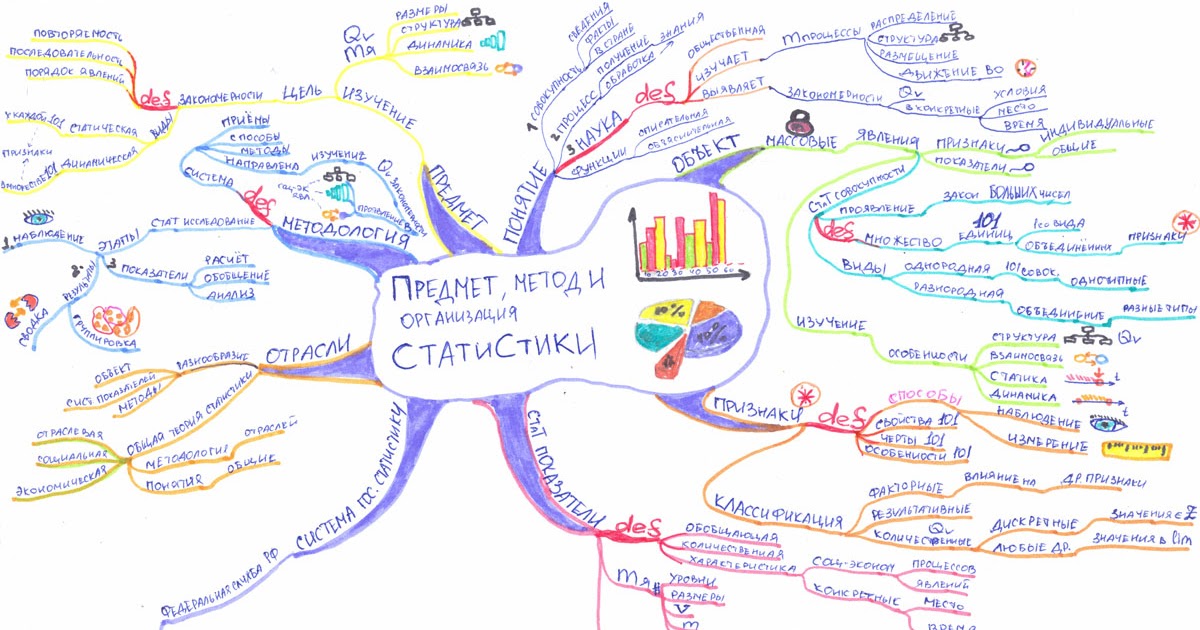 ПРЕДМЕТ, МЕТОД И
ОРГАНИЗАЦИЯ
СТАТИСТИКИ
10 20 30 40 50 60
ПРЕДМЕТ
ИЗУЧЕНИЕ
Qv
mя
РАЗМЕРЫ
СТРУКТУРА
ДИНАМИКА
ВЗАИМОСВЯЗЬ
ЦЕЛЬ
ЗАКОНОМЕРНОСТИ
def
ПОВТОРЯЕМОСТЬ
ПОСЛЕДОВАТЕЛЬНОСТЬ
ПОРЯДОК ЯВЛЕНИЙ
ВИДЫ
СТАТИЧЕСКАЯ
У КАЖДОЙ 101
ПРИЗНАКИ
ДИНАМИЧЕСКАЯ
ПОНЯТИЕ
1 СОВОКУПНОСТЬ
СВЕДЕНИЯ
ФАКТЫ
В СТРАНЕ
2 ПРОЦЕСС
ПОЛУЧЕНИЕ
ОБРАБОТКА
ЗНАНИЯ
3 НАУКА
def
ОБЩЕСТВЕННАЯ
ИЗУЧАЕТ
mПРОЦЕССЫ
РАСПРЕДЕЛЕНИЕ
СТРУКТУРА
РАЗМЕЩЕНИЕ
ДВИЖЕНИЕ ВО
ВЫЯВЛЯЕТ
ЗАКОНОМЕРНОСТИ
Qv
В КОНКРЕТНЫЕ
УСЛОВИЯ
МЕСТО
ВРЕМЯ
ФУНКЦИИ
ОПИСАТЕЛЬНАЯ
ОБЪЯСНИТЕЛЬНАЯ
ОБЪЕКТ
МАССОВЫЕ
ЯВЛЕНИЯ
ПРИЗНАКИ
ИНДИВИДУАЛЬНЫЕ
ОБЩИЕ
ПОКАЗАТЕЛИ
СТАТ СОВОКУПНОСТИ
def
ПРОЯВЛЕНИЕ
ЗАКОН БОЛЬШИХ ЧИСЕЛ
МНОЖЕСТВО
101
ЕДИНИЦ
1-ГО ВИДА
ОБЪЕДИНЁННЫХ
ПРИЗНАКИ
ВИДЫ
ОДНОРОДНАЯ
101 СОВОК.
ОДНОТИПНЫЕ
РАЗНОРОДНАЯ
ОБЪЕДИНЕНИЕ
РАЗНЫЕ ТИПЫ
ИЗУЧЕНИЕ
ОСОБЕННОСТИ
СТРУКТУРА
Qv
ВЗАИМОСВЯЗЬ
СТАТИКА
t
ДИНАМИКА
t
МЕТОДОЛОГИЯ
def
СИСТЕМА
ПРИЁМЫ
СПОСОБЫ
МЕТОДЫ
НАПРАВЛЕНА
ИЗУЧЕНИЕ
Qv ЗАКОНОМЕРН
СТАТ ИССЛЕДОВАНИЕ
ЭТАПЫ
1. НАБЛЮДЕНИЕ
2. РЕЗУЛЬТАТЫ
СВОДКА
ГРУППИРОВКА
3 ПОКАЗАТЕЛИ
РАСЧЁТ
ОБОБЩЕНИЕ
АНАЛИЗ
ОТРАСЛИ
РАЗНООБРАЗИЕ
ОБЪЕКТ
СИСТ ПОКАЗАТЕЛЕЙ
МЕТОДЫ
ОБЩАЯ ТЕОРИЯ СТАТИСТИКИ
ОТРАСЛЕВАЯ
СОЦИАЛЬНАЯ
ЭКОНОМИЧЕСКАЯ
МЕТОДОЛОГИЯ
ОТРАСЛЕЙ
ПОНЯТИЯ
ОБЩИЕ
СИСТЕМА ГОС. СТАТИСТИКИ
ФЕДЕРАЛЬНАЯ СЛУЖБА РФ
ПРИЗНАКИ
def
СПОСОБЫ
НАБЛЮДЕНИЕ
ИЗМЕРЕНИЕ
СВОЙСТВА 101
ЧЕРТЫ 101
ОСОБЕННОСТИ 101
КЛАССИФИКАЦИЯ
ФАКТОРНЫЕ
ВЛИЯНИЕ НА
ДР. ПРИЗНАКИ
РЕЗУЛЬТАТИВНЫЕ
Qv
КОЛИЧЕСТВЕННЫЕ
ДИСКРЕТНЫЕ
ЗНАЧЕНИЯ ∈ Z
ЛЮБЫЕ ДР.
ЗНАЧЕНИЯ В lim
СТАТ ПОКАЗАТЕЛИ
def
ОБОБЩАЮЩАЯ
КОЛИЧЕСТВЕННАЯ
ХАРАКТЕРИСТИКА
СОЦ-ЭКОНОМ
ПРОЦЕССОВ
ЯВЛЕНИЙ
КОНКРЕТНЫЕ
МЕСТО
ВРЕМЯ
mя
УРОВНИ
РАЗМЕРЫ
V
m